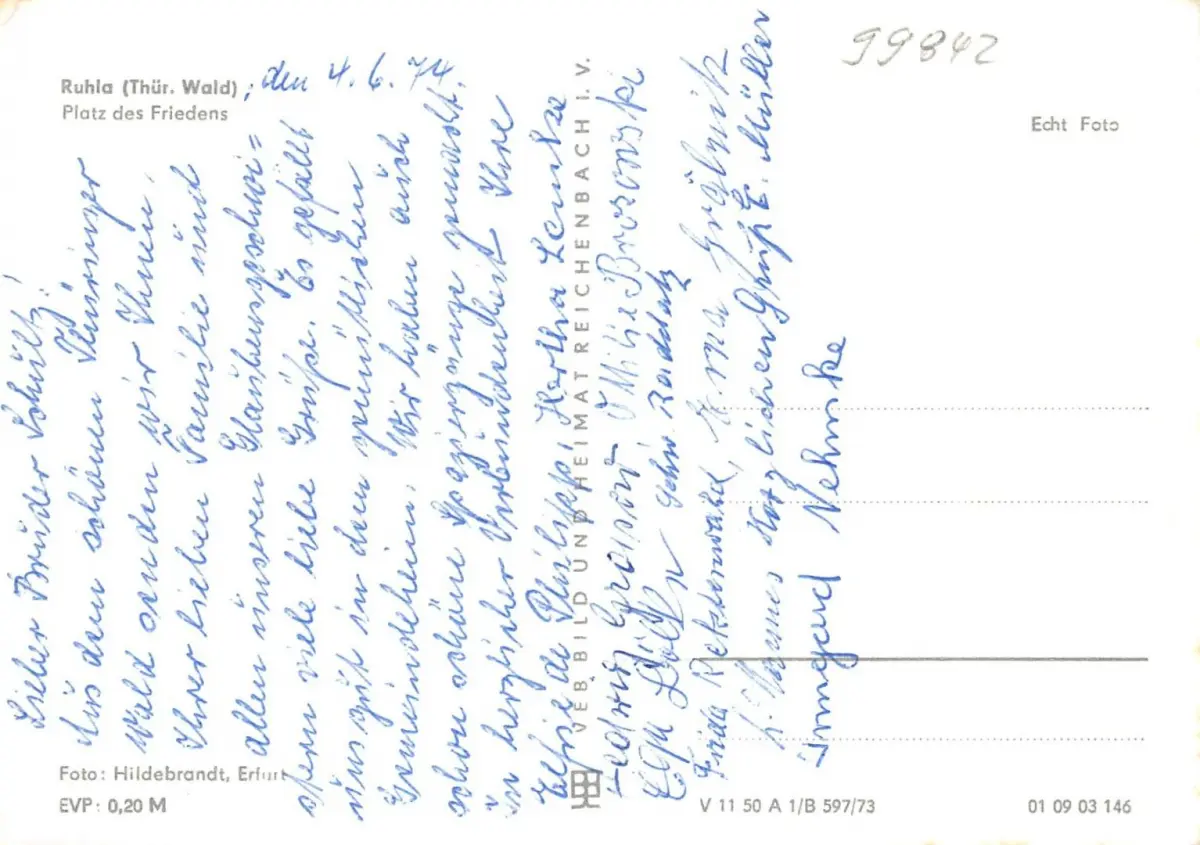 Ruhla (Thür. Wald), den 4. 6. 74
Platz des Friedens
99842
Echt Foto
Lieber Bruder Schütz!
Aus dem schönen Thüringer
Wald senden wir Ihnen,
Ihrer lieben Familie und
allen unseren Glaubensgeschwi=
stern viele liebe Grüße. Es gefällt
uns gut in den gemütlichen
Gemeindeheim. Wir haben auch
schon schöne Spaziergänge gemacht.
In herzlicher Verbundenheit Ihre
Elfriede Philipp, Hertha Lemke
Hedwig
Frida Erna
herzlichen Gruß E. Müller
Irmgard Nehmke
VEB BILD UND HEIMAT REICHENBACH I. V.
Foto: Hildebrandt, Erfurt
EVP: 0,20 M
V 11 50 A 1/B 597/73
01 09 03 146